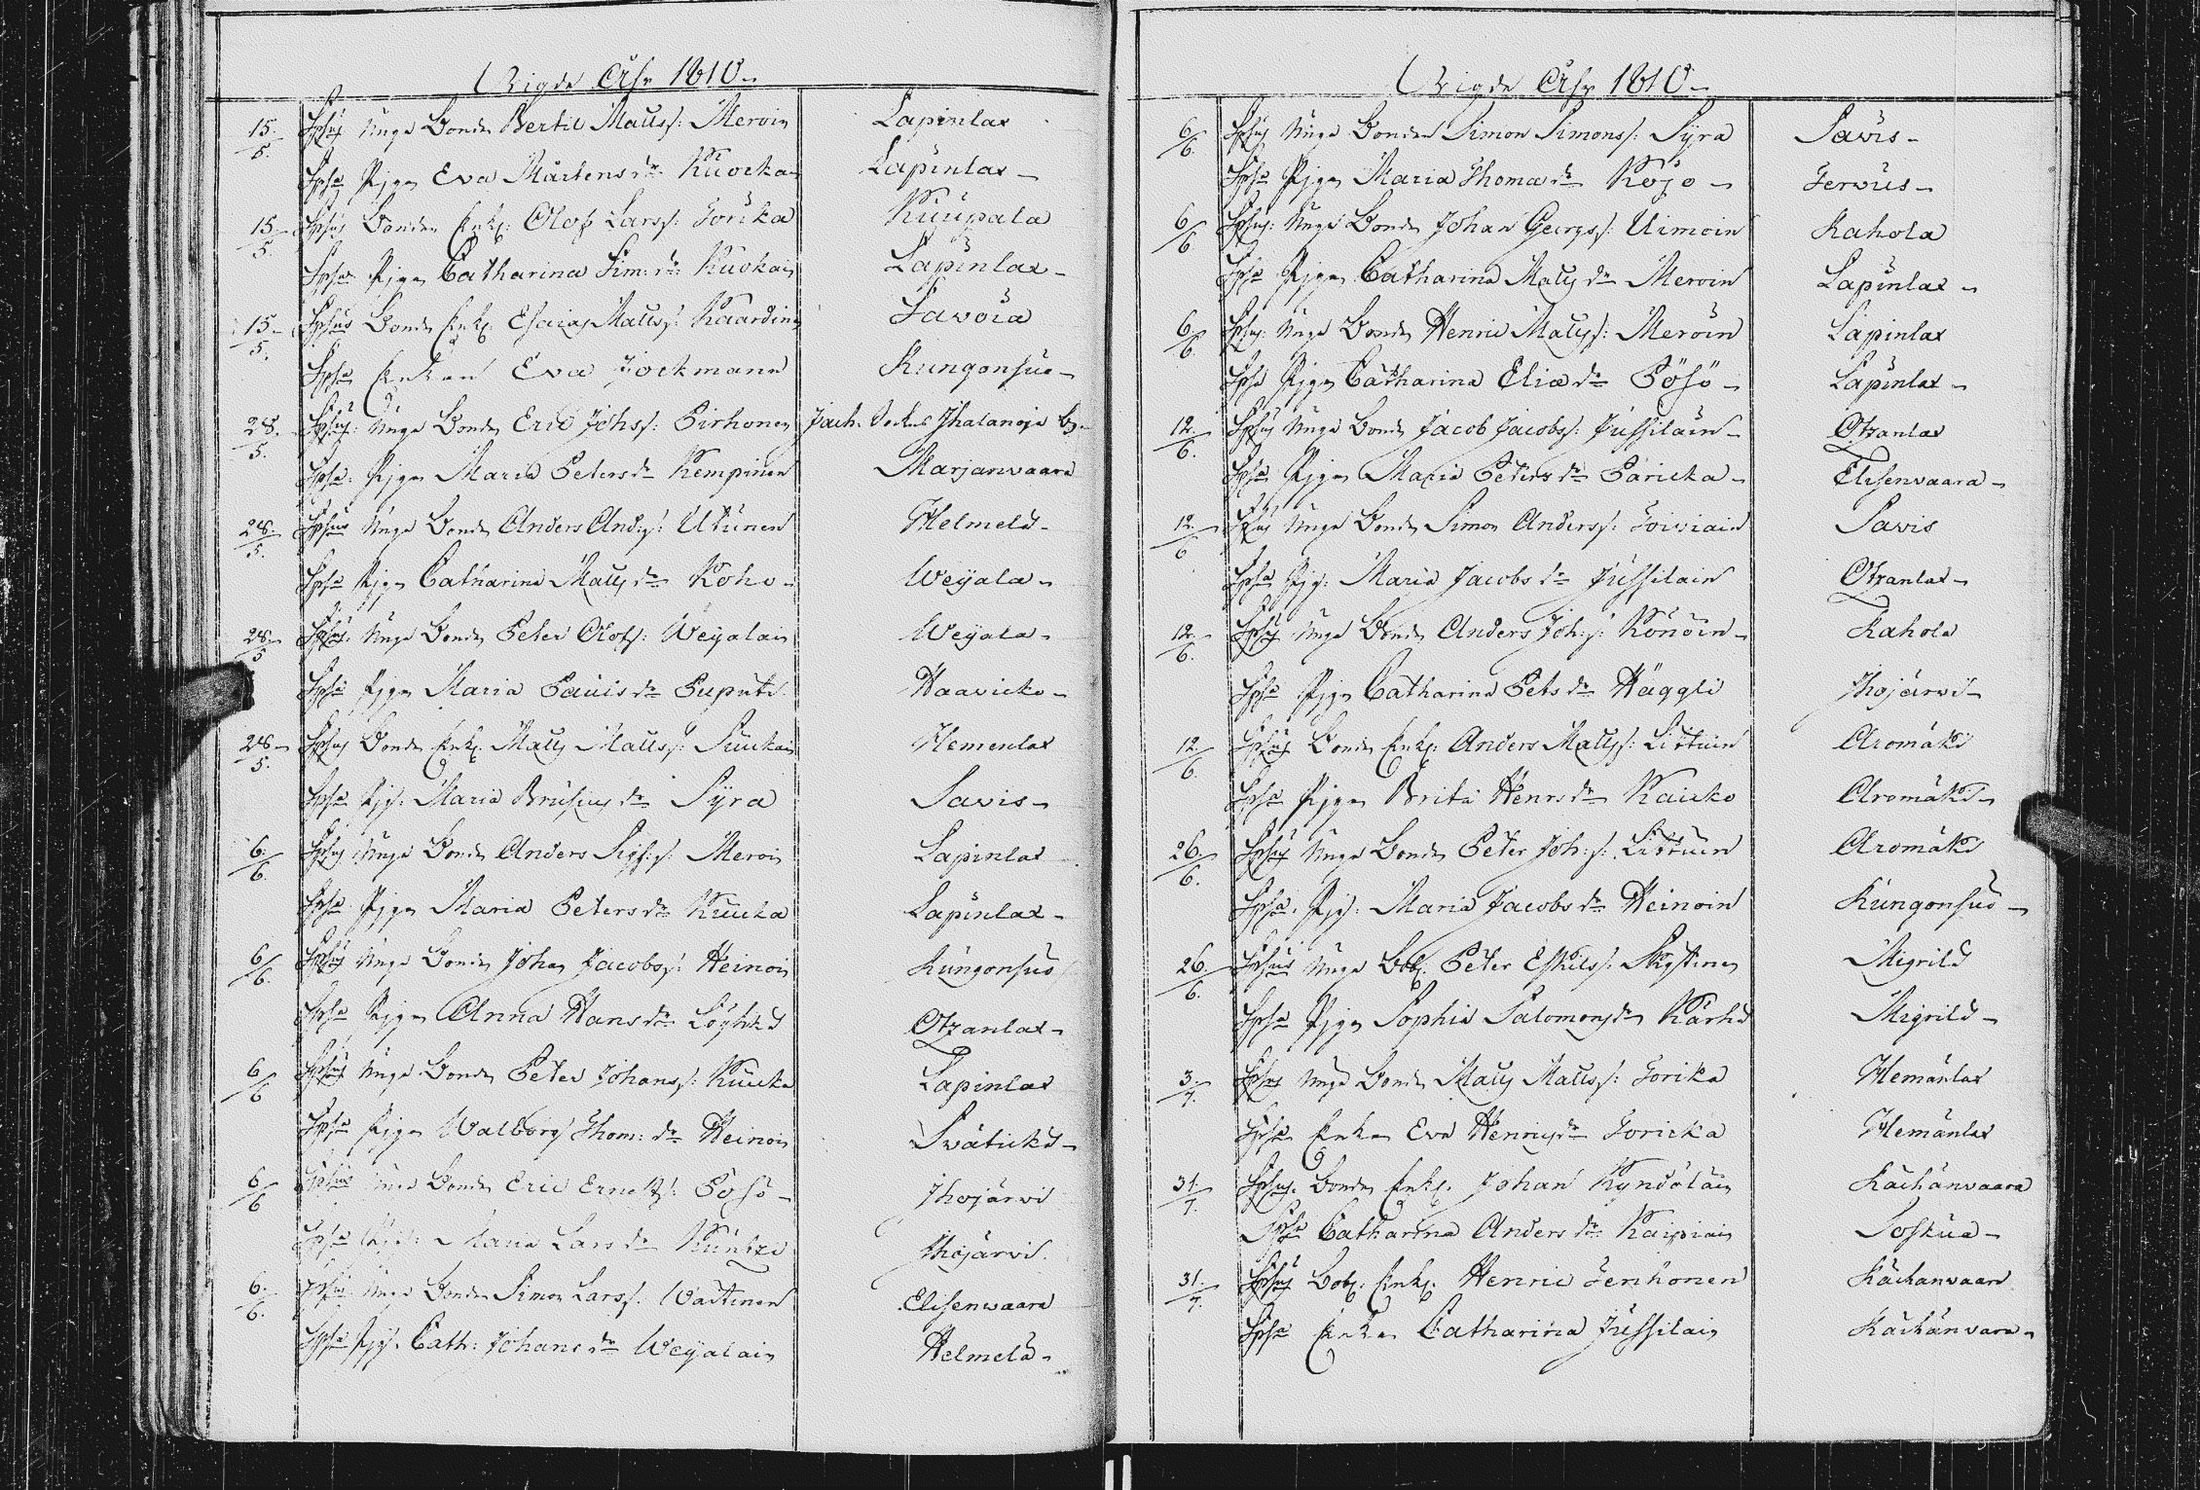 Vigde Åhr 1810
15/5. Spsus Unge Bonden Bertil Matts s: Meroin Lapinlax
Spsa Pigan Eva Mårtens dr Kuocka Lapinlax
15/5. Spsus Bonden Enkl: Olof Lars s: Torika Kuupala
Spsa Pigan Catharina Sim: dr Kuokain Lapinlax
15/5. Spsus Bonden Enkl: Esaias Matts s: Kaardinen Savoia
Spsa Enkan Eva Jockmann Kungonsuo
28/5. Spsus: Unge Bonden Eric Johs s: Pirhonen Jaak. Sockn Ihalanoja by
Spsa: Pigan Maria Peters dr Kempinen Marjanvaara
28/5. Spsus Unge Bonden Anders And: s: Utunen Helmelä
Spsa Pigan Catharina Matts dr Koho Weijala
28/5 Spsus: Unge Bonden Peter Olofs: Weijalain Weijala
Spsa Pigan Maria Pauls dr Puputi Haavicko
28/5. Spsus Bonden Enkl: Matts Matts s: Suckain Hemenlax
Spsa Pig: Maria Brusius dr Syra Savis
6/6. Spsus Unge Bonden Anders Sigf: s: Meroin Lapinlax
Spsa Pigan Maria Peters dr Kuicka Lapinlax
6/6. Spsus Unge Bonden Johan Jacobs s: Heinoin Kungonsuo
Spsa Pigan Anna Hans dr Löghki Otzanlax
6/6 Spsus Unge Bonden Peter Johans s: Kuicka Lapinlax
Spsa Pigan Walborg Thom: dr Heinoin Svätickä
6/6 Spsus Unge Bonden Eric Ernst s: Pösö Ihojärvi
Spsa Pig: Maria Lars dr Kuntzi Ihojärvi
6/6. Spsus Unge Bonden Simon Lars s. Wäätinen Elisenvaara
Spsa Pig. Cath: Johans dr Weijalain Helmelä
Vigde Åhr 1810
6/6. Spsus Unge Bonden Simon Simons s: Syra Savis
Spsa Pigan Maria Thomæ dr Kojo Tervus
6/6 Spsus: Unge Bonden Johan Georgs s: Uimoin Rahola
Spsa Pigan Catharina Matts dr Meroin Lapinlax
6/6 Spsus: Unge Bonden Henric Matts s: Meroin Lapinlax
Spsa Pigan Catharina Eliæ dr Pösö Lapinlax
12/6. Spsus Unge Bonden Jacob Jacobs s: Jussilain Otzanlax
Spsa Pigan Maria Peters dr Paricka Elisenvaara
12/6 Spsus Unge Bonden Simon Anders s: Toiviain Savis
Spsa Pig: Maria Jacobs dr Jussilain Otzanlax
12/6. Spsus Unge Bonden Anders Joh: s: Konoin Rahola
Spsa Pigan Catharina Pets dr Häggli Ihojärvi
12/6. Spsus Bonden Enkl: Anders Matts s: Littuin Aromäki
Spsa Pigan Brita Henrs dr Kaicko Aromäki
26/6. Spsus Unge Bonden Peter Joh: s: Littuin Aromäki
Spsa. Pig: Maria Jacobs dr Heinoin Kungonsuo
26/6. Spsus Unge Bob: Peter Eskils s: Skyttinen Migrilä
Spsa Pigan Sophia Salomons dr Kärki Migrilä
3/7. Spsus Unge Bonden Matts Matts s: Torika Hemänlax
Spsa Enkan Eva Henrics dr Toricka Hemänlax
31/7. Spsus. Bonden Enkl. Johan Kyndöläin Kächänvaara
Spsa Catharina Anders dr Kaipiain Soskua
31/7. Spsus Bob: Enkl. Henric Tenhonen Kächänvaara
Spsa Enkan Catharina Jussilain Kächänvara